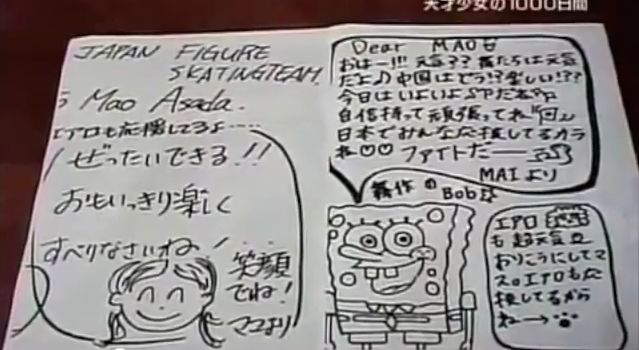 天才少女の1000日間
JAPAN FIGURE
SKATINGTEAM.
Mao Asada.
エアロも応援してるよ····
ぜったいできる!!
おもいっきり楽しく
すべりなさいね!
笑顔
でね!
マコより
Dear MAO
おはー!!! 元気?? 舞たちは元気
だよ♪中国はどう!?楽しい!??
今日はいよいよSPだね
自信持って頑張ってね
日本でみんな応援してるカラ
ね♡♡ ファイトだー
MAIより
新作の
Bob☆
エアロ
も超元気
おりこうにしてマ
ス。エアロも応
援してるから
ねー→